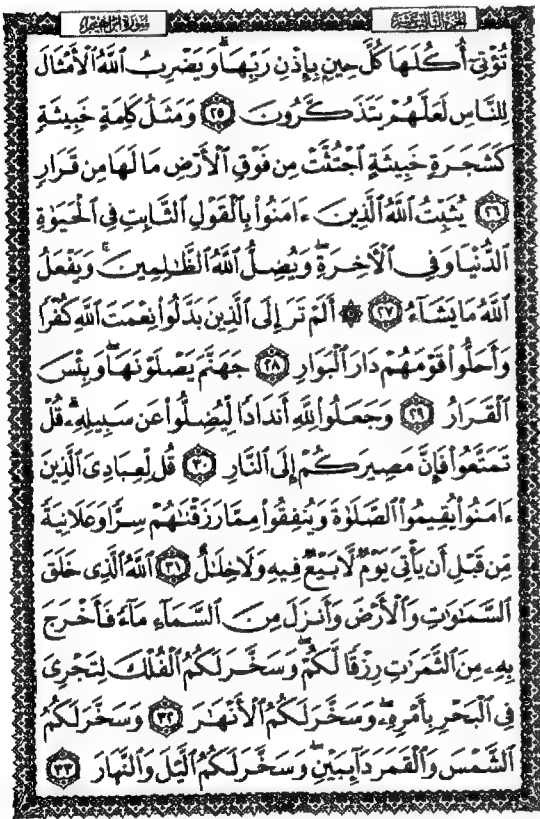 سورة إبراهيم
الجزء الثالث عشر
تُؤْتِىٓ أُكُلَهَا كُلَّ حِينٍۭ بِإِذْنِ رَبِّهَاۗ وَيَضْرِبُ ٱللَّهُ ٱلْأَمْثَالَ
لِلنَّاسِ لَعَلَّهُمْ يَتَذَكَّرُونَ ٢٥ وَمَثَلُ كَلِمَةٍ خَبِيثَةٍ
كَشَجَرَةٍ خَبِيثَةٍ ٱجْتُثَّتْ مِن فَوْقِ ٱلْأَرْضِ مَا لَهَا مِن قَرَارٍ
٢٦ يُثَبِّتُ ٱللَّهُ ٱلَّذِينَ ءَامَنُوا۟ بِٱلْقَوْلِ ٱلثَّابِتِ فِى ٱلْحَيَوٰةِ
ٱلدُّنْيَا وَفِى ٱلْءَاخِرَةِۖ وَيُضِلُّ ٱللَّهُ ٱلظَّـٰلِمِينَۚ وَيَفْعَلُ
ٱللَّهُ مَا يَشَآءُ ٢٧ ۞ أَلَمْ تَرَ إِلَى ٱلَّذِينَ بَدَّلُوا۟ نِعْمَتَ ٱللَّهِ كُفْرًا
وَأَحَلُّوا۟ قَوْمَهُمْ دَارَ ٱلْبَوَارِ ٢٨ جَهَنَّمَ يَصْلَوْنَهَاۖ وَبِئْسَ
ٱلْقَرَارُ ٢٩ وَجَعَلُوا۟ لِلَّهِ أَندَادًا لِّيُضِلُّوا۟ عَن سَبِيلِهِۦۗ قُلْ
تَمَتَّعُوا۟ فَإِنَّ مَصِيرَكُمْ إِلَى ٱلنَّارِ ٣٠ قُل لِّعِبَادِىَ ٱلَّذِينَ
ءَامَنُوا۟ يُقِيمُوا۟ ٱلصَّلَوٰةَ وَيُنفِقُوا۟ مِمَّا رَزَقْنَـٰهُمْ سِرًّا وَعَلَانِيَةً
مِّن قَبْلِ أَن يَأْتِىَ يَوْمٌ لَّا بَيْعٌ فِيهِ وَلَا خِلَـٰلٌ ٣١ ٱللَّهُ ٱلَّذِى خَلَقَ
ٱلسَّمَـٰوَٰتِ وَٱلْأَرْضَ وَأَنزَلَ مِنَ ٱلسَّمَآءِ مَآءً فَأَخْرَجَ
بِهِۦ مِنَ ٱلثَّمَرَٰتِ رِزْقًا لَّكُمْۖ وَسَخَّرَ لَكُمُ ٱلْفُلْكَ لِتَجْرِىَ
فِى ٱلْبَحْرِ بِأَمْرِهِۦۖ وَسَخَّرَ لَكُمُ ٱلْأَنْهَـٰرَ ٣٢ وَسَخَّرَ لَكُمُ
ٱلشَّمْسَ وَٱلْقَمَرَ دَآئِبَيْنِۖ وَسَخَّرَ لَكُمُ ٱلَّيْلَ وَٱلنَّهَارَ ٣٣